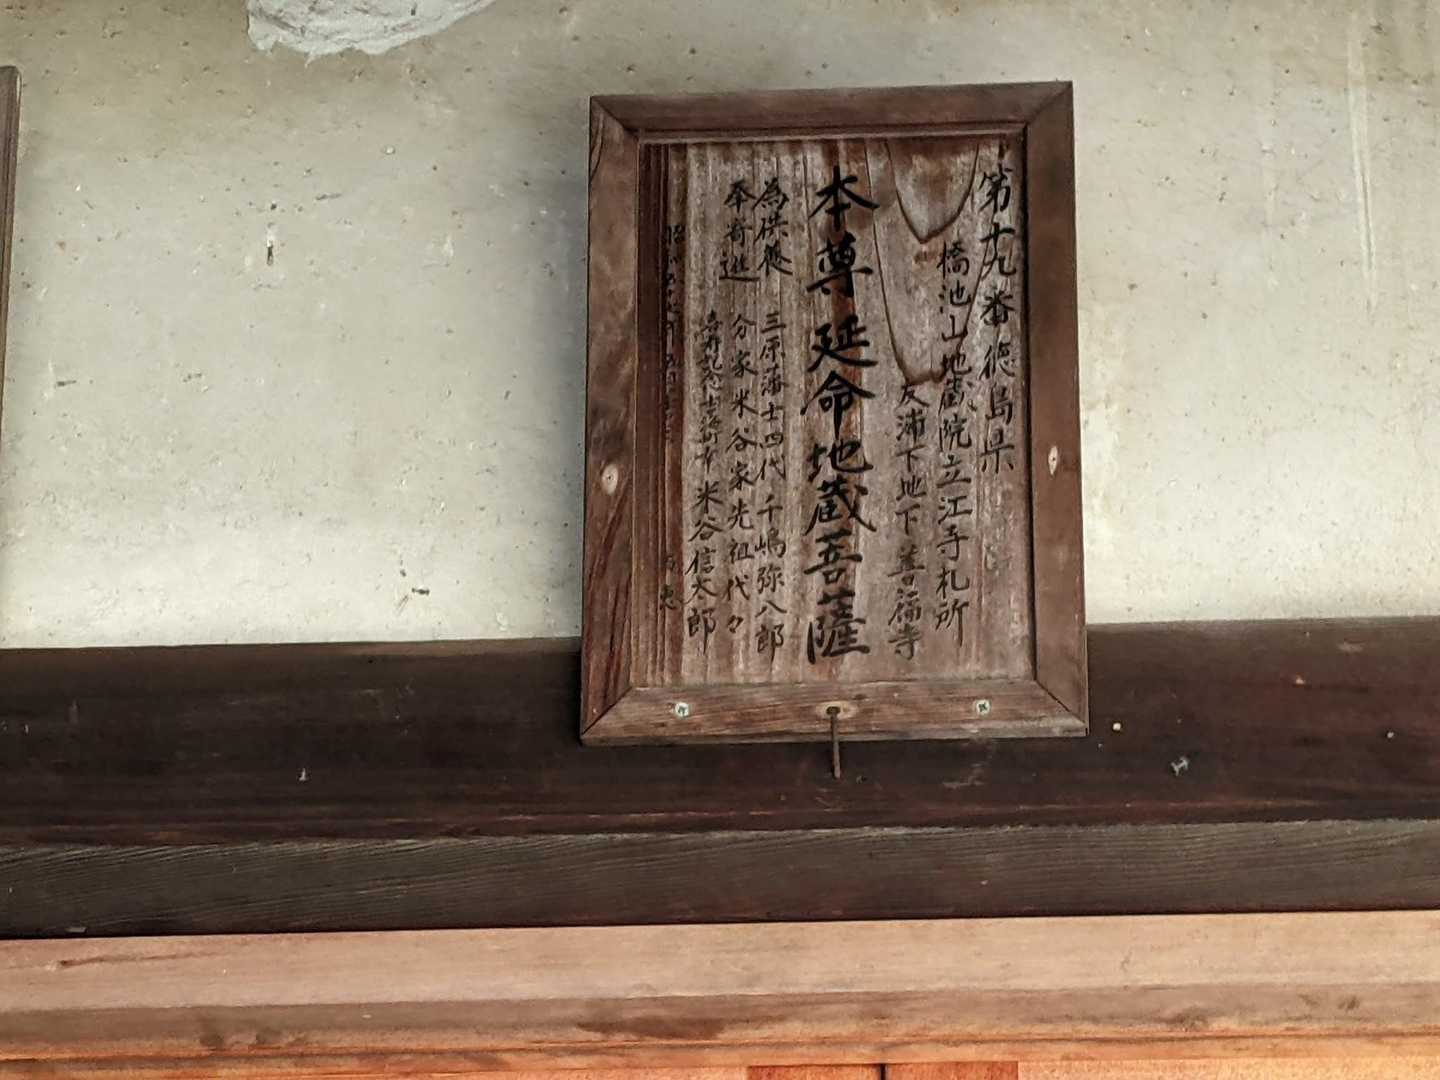 第十九番徳島県
橋池山地蔵院立江寺札所
友浦下地下善福寺
本尊延命地蔵菩薩
為供養 三原藩士四代千嶋弥八郎
奉寄進 分家米谷家先祖代々
米谷信太郎
昭